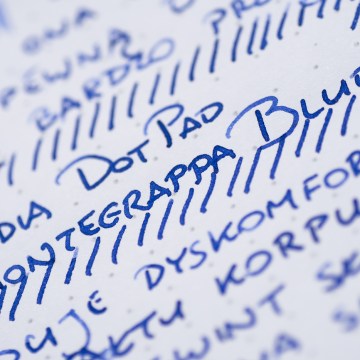 OWA
PEWNĄ
BARDZO PRO
DIA DOTPAD
MONTEGRAPPA BLUE
DUJE DYSKOMFOR
AKTU KORPU
GWINT SE